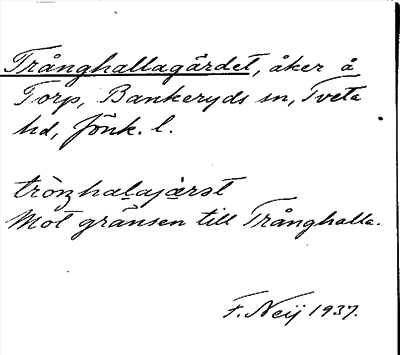 Trånghallagärdet, åker å
Torp, Bankeryds sn, Tveta
hd, Jönk. l.
Mot gränsen till Trånghalla.
F. Neij 1937.